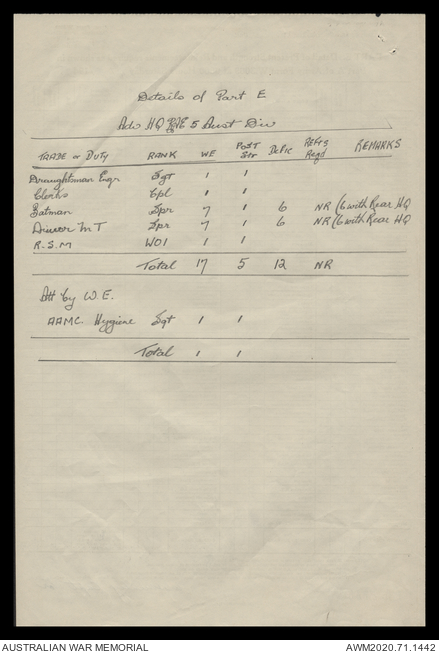 Details of Part E
Adv HQ RAE 5 Aust Div
TRADE or DUTY RANK WE Post Str Defic Refts Reqd REMARKS
Draughtsman Engr Sgt 1 1
Clerks Cpl 1 1
Batman Spr 7 1 6 NR (6 with Rear HQ
Driver MT Spr 7 1 6 NR (6 with Rear HQ
R.S.M WO1 1 1
Total 17 5 12 NR
Att by W.E.
AAMC. Hygiene Sgt 1 1
Total 1 1
AUSTRALIAN WAR MEMORIAL AWM2020.71.1442